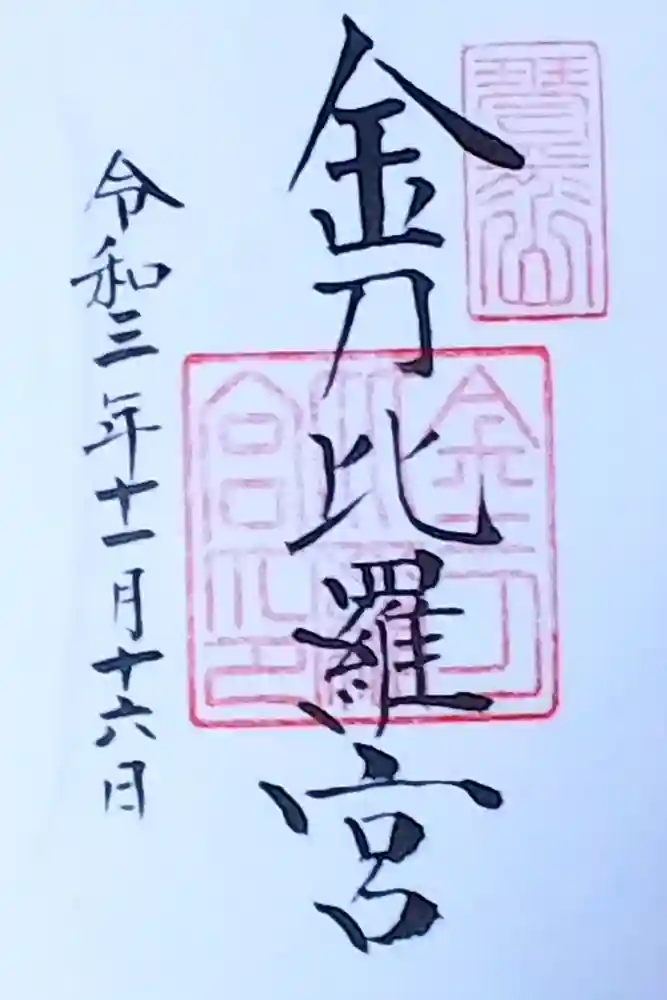 琴平山
金刀比羅宮
金刀比羅宮之印
令和三年十一月十六日